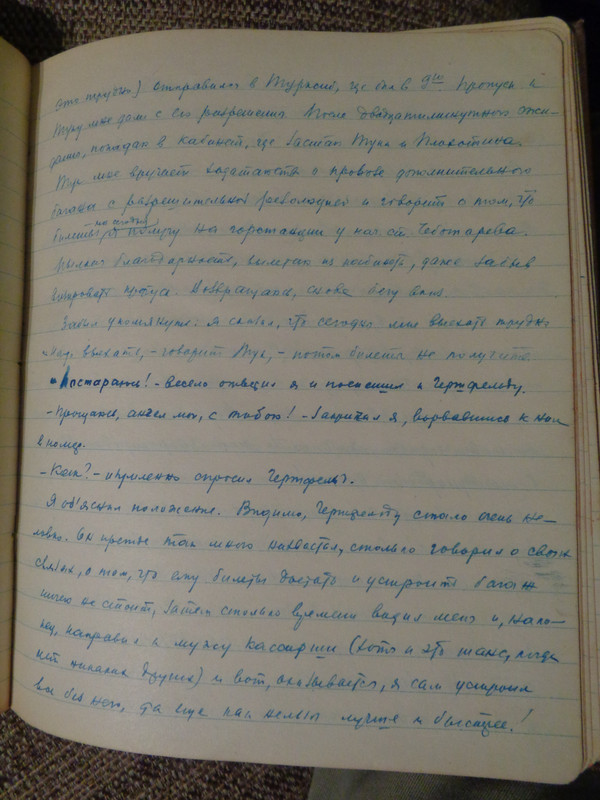 отправился в Турксиб, где был в 9ш Пропуск к
Туку мне дали с его разрешения. После двадцатиминутного ожи-
дания, попадаю в кабинет, где застал Тука и Плахотина.
Тук мне вручает ходатайство о провозе дополнительного
багажа с разрешительной резолюцией и говорит о том, что
билеты на сегодня я получу на горстанции у нач. ст. Чеботарева.
благодарность, вылетаю из кабинета, даже забыв
пропуск. Возвращаюсь, снова бегу вниз.
Забыл упомянуть: я сказал, что сегодня мне выехать трудно
- Надо выехать, - говорит Тук, - потом билета не получите.
- Постараюсь! - весело ответил я и поспешил к Герцфельду.
- Прощаюсь, ангел мой, с тобою! - закричал я, ворвавшись к нам
в номер.
- Как? - изумленно спросил Герцфельд.
Я об'яснил положение. Видимо, Герцфельду стало очень не-
ловко. Он прежде так много хвастался, столько говорил о своих
связях, о том, что ему билеты достать и устроить багаж
ничего не стоит, затем столько времени водил меня и, нако-
нец, направил к мужу кассирши (хотя и это шанс, когда
нет никаких других) и вот, оказывается, я сам устроил
все без него, да еще как нельзя лучше и быстрее!